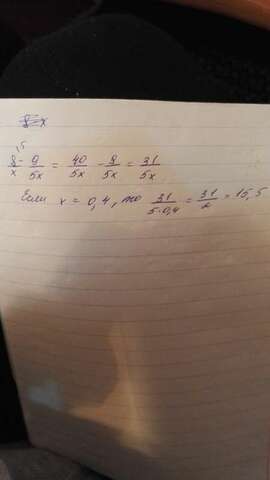 8/x - 9/5x = 40/5x - 9/5x = 31/5x
Если x = 0,4, то 31/5·0,4 = 31/2 = 15,5